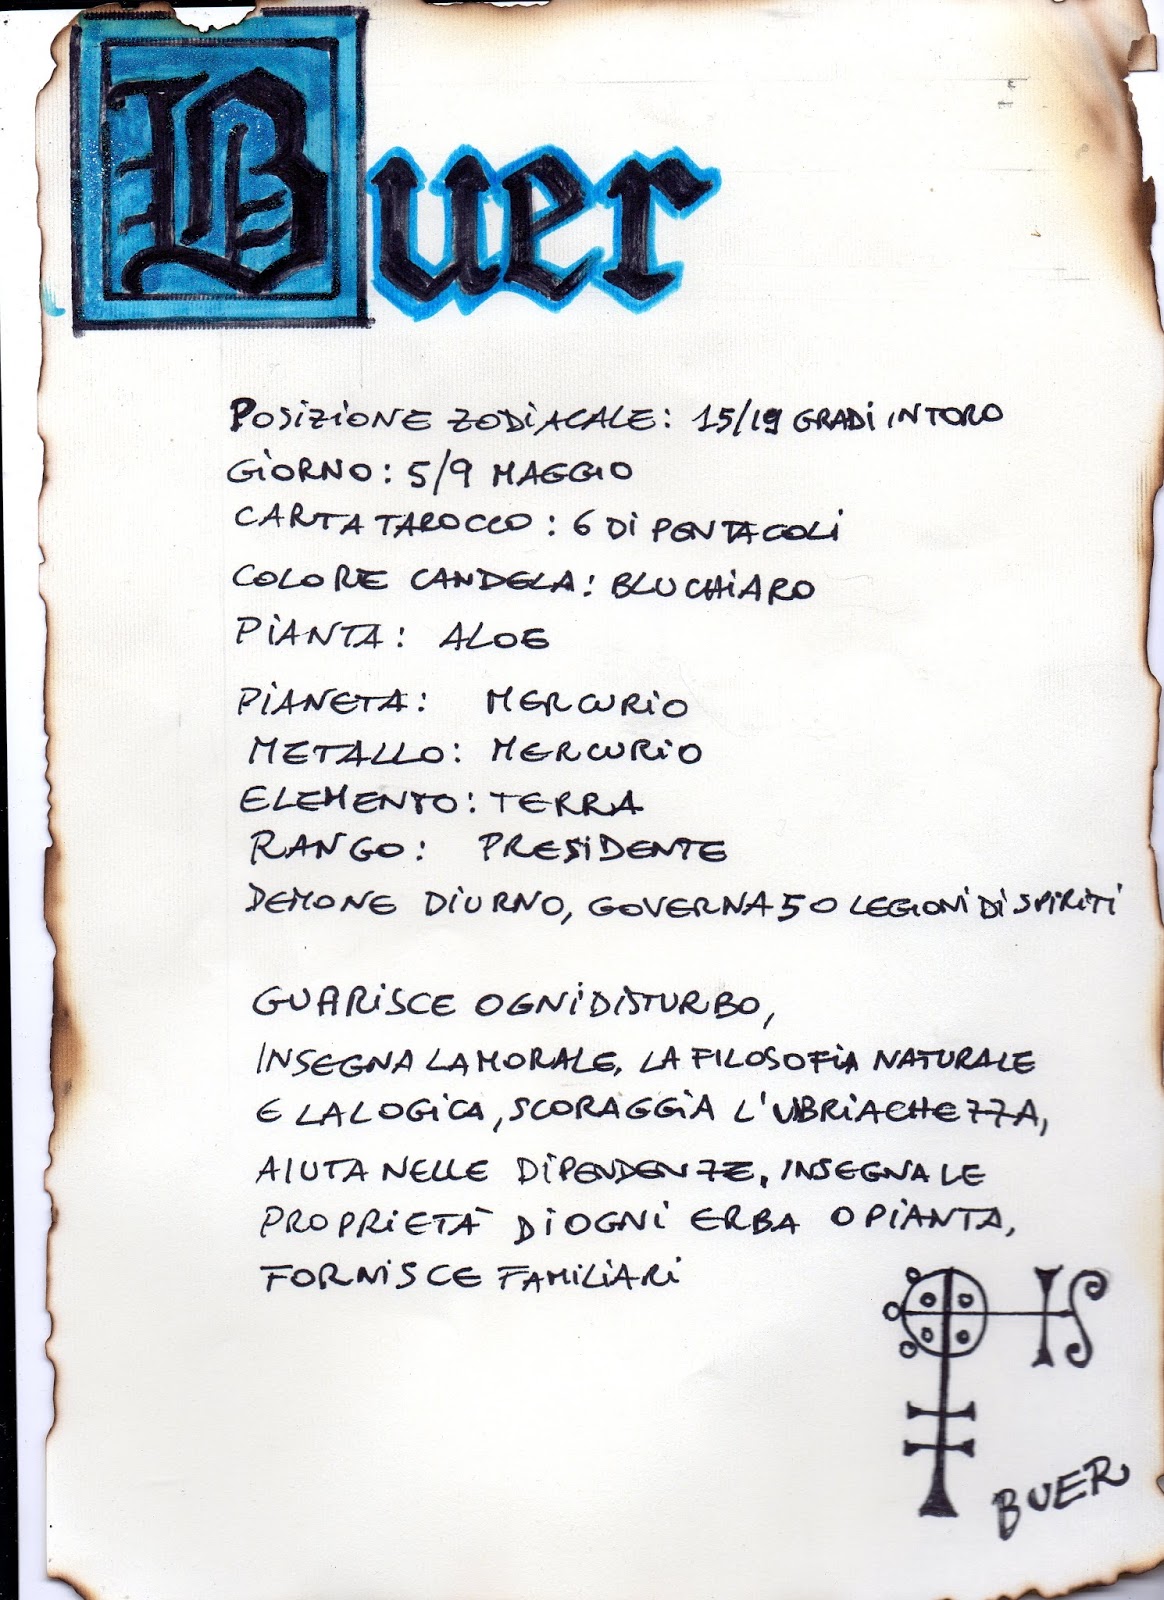 Buer
POSIZIONE ZODIACALE: 15/19 GRADI IN TORO
GIORNO: 5/9 MAGGIO
CARTA TAROCCO: 6 DI PENTACOLI
COLORE CANDELA: BLU CHIARO
PIANTA: ALOE
PIANETA: MERCURIO
METALLO: MERCURIO
ELEMENTO: TERRA
RANGO: PRESIDENTE
DEMONE DIURNO, GOVERNA 50 LEGIONI DI SPIRITI
GUARISCE OGNI DISTURBO,
INSEGNA LA MORALE, LA FILOSOFIA NATURALE
E LA LOGICA, SCORAGGIA L'UBRIACHEZZA,
AIUTA NELLE DIPENDENZE, INSEGNA LE
PROPRIETÀ DI OGNI ERBA O PIANTA,
FORNISCE FAMILIARI
BUER